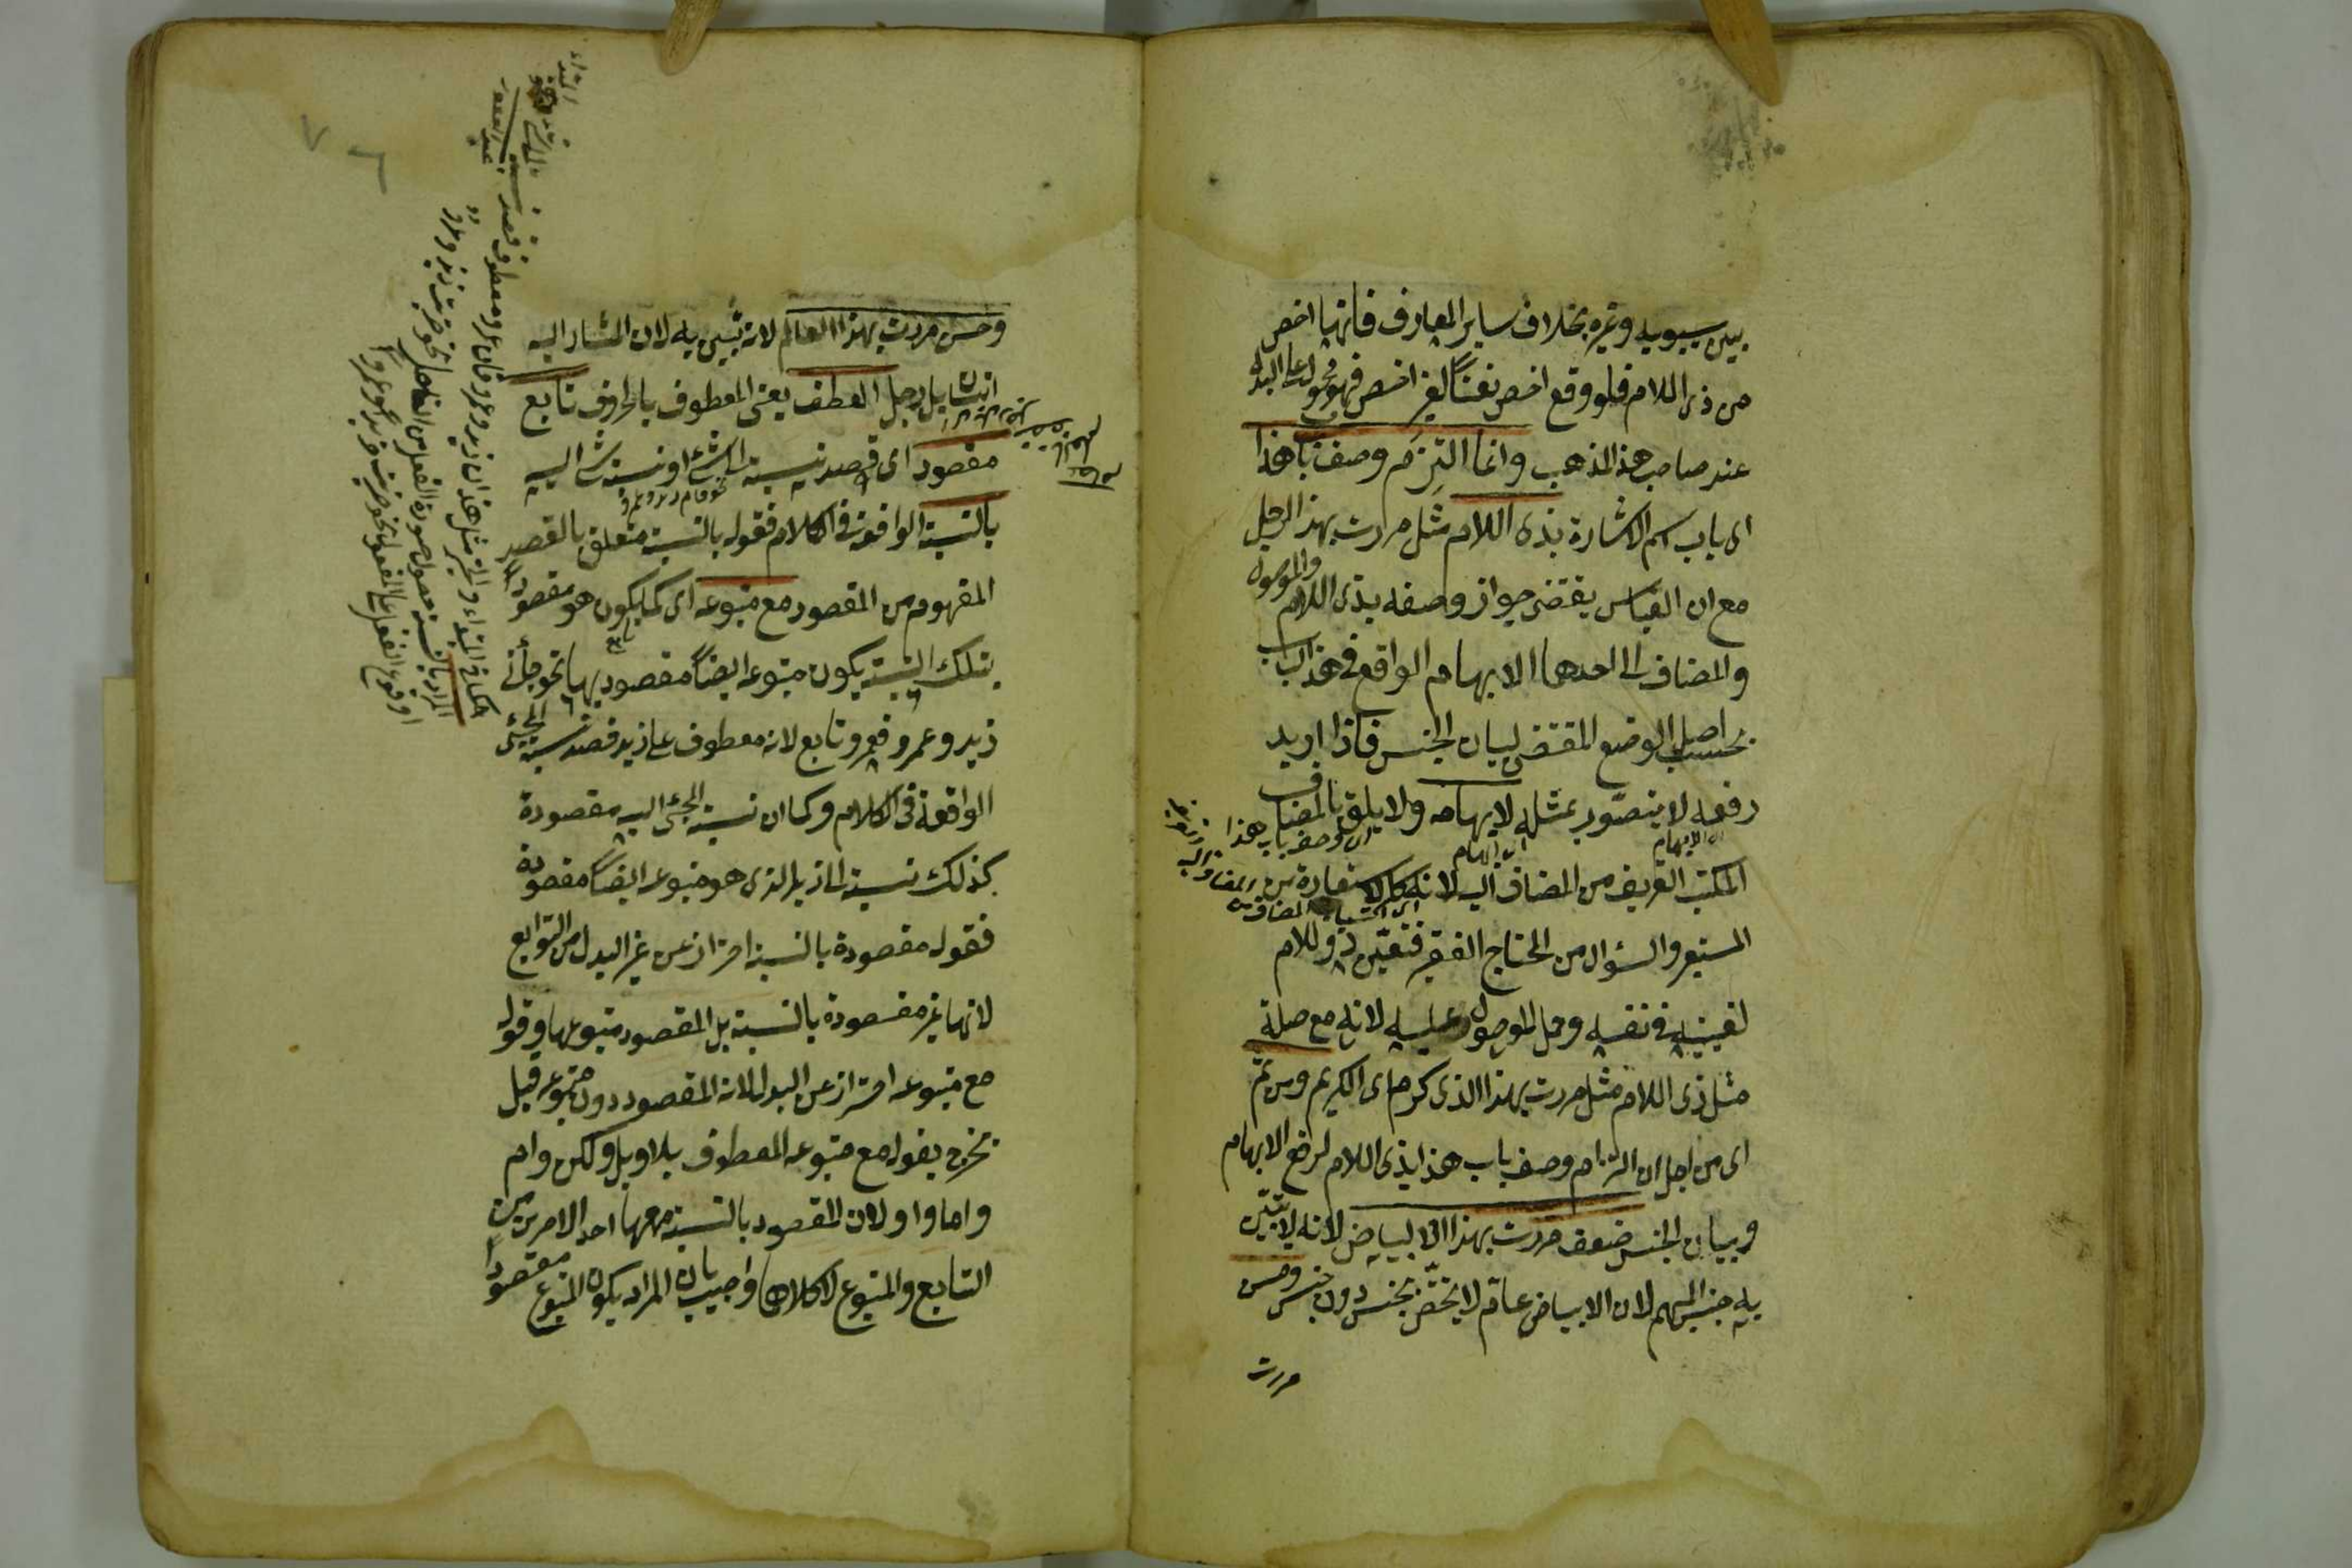 بين سيبويه وغيره بخلاف ساير المعارف فانها اخص
من ذى اللام فلو وقع اخص نعتا لغير اخص فهو محمول على البدل
عند صاحب هذا المذهب وانما التزم وصف باب هذا
اى باب اسم الاشارة بذى اللام مثل مررت بهذا الرجل
مع ان القياس يقتضى جواز وصفه بذى اللام والموصول
والمضاف الى احدهما الابهام الواقع فى هذا الباب
بحسب اصل الوضع المقتضى لبيان الجنس فاذا اريد
رفعه لا يتصور بمثله لابهامه ولا يليق بالمضاف
المكتسب التعريف من المضاف اليه لانه كالاستعارة من
المستعير والسؤال من المحتاج الفقير فتعين ذو اللام
لتعينه فى نفسه وحمل الموصول عليه لانه مع صلة
مثل ذى اللام مثل مررت بهذا الذى كرم اى الكريم ومن ثم
اى من اجل ان التزام وصف باب هذا بذى اللام لرفع الابهام
وبيان الجنس ضعف مررت بهذا الابيض لانه لا يتبين
به جنس المبهم لان الابيض عام لا يختص بجنس دون جنس وحسن
مررت
وحسن مررت بهذا العالم لانه يتبين به لان المشار اليه
انسان بل رجل العطف يعنى المعطوف بالحروف تابع
مقصود اى قصد نسبته الى شئ او نسبة شئ اليه
نحو قام زيد وعمرو
بالنسبة الواقعة فى الكلام فقوله بالنسبة متعلق بالقصد
المفهوم من المقصود مع متبوعه اى كما يكون هو مقصودا
بتلك النسبة يكون متبوعه ايضا مقصود بها نحو جائنى
زيد وعمرو فعمرو تابع لانه معطوف على زيد قصد نسبة المجئ
الواقعة فى الكلام وكما ان نسبة المجئ اليه مقصودة
كذلك نسبته الى زيد الذى هو متبوعه ايضا مقصودة
فقوله مقصودة بالنسبة احتراز عن غير البدل من التوابع
لانها غير مقصودة بالنسبة بل المقصود متبوعها وقوله
مع متبوعه احتراز عن البدل لانه المقصود دون متبوعه قيل
يخرج بقوله مع متبوعه المعطوف بلا وبل ولكن وام
واما واو لان المقصود بالنسبة معها احد الامرين من
التابع والمتبوع لا كلاهما واجيب بان المراد بكون المتبوع مقصودا